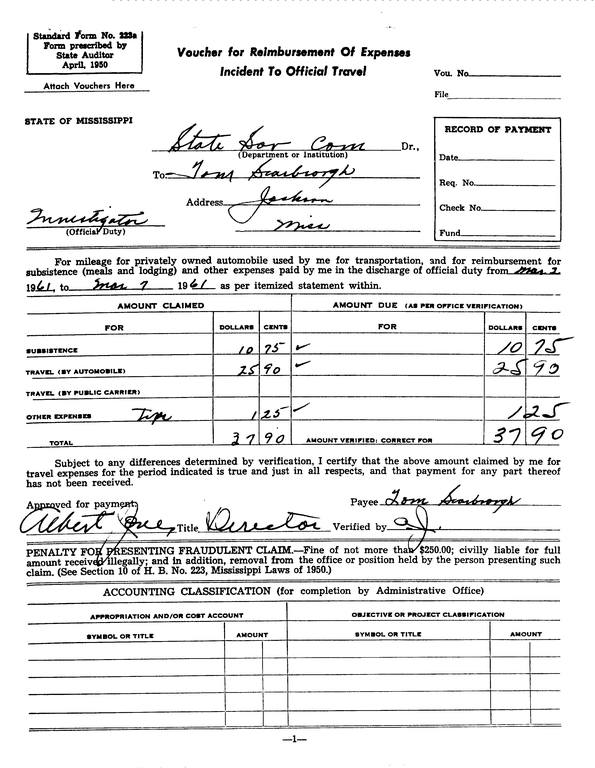 Standard Form No. 223a
Form prescribed by
State Auditor
April, 1950
Attach Vouchers Here
Voucher for Reimbursement Of Expenses
Incident To Official Travel
Vou. No.
File
STATE OF MISSISSIPPI
State Sov Com Dr.,
(Department or Institution)
To Tom Scarbrough
Address Jackson
Miss
Investigator
(Official Duty)
RECORD OF PAYMENT
Date
Req. No.
Check No.
Fund
For mileage for privately owned automobile used by me for transportation, and for reimbursement for
subsistence (meals and lodging) and other expenses paid by me in the discharge of official duty from Mar 2
1961, to Mar 7 1961 as per itemized statement within.
AMOUNT CLAIMED AMOUNT DUE (AS PER OFFICE VERIFICATION)
FOR DOLLARS CENTS FOR DOLLARS CENTS
SUBSISTENCE 10 75 ✓ 10 75
TRAVEL (BY AUTOMOBILE) 25 90 ✓ 25 90
TRAVEL (BY PUBLIC CARRIER)
OTHER EXPENSES Tips 1 25 ✓ 1 25
TOTAL 37 90 AMOUNT VERIFIED: CORRECT FOR 37 90
Subject to any differences determined by verification, I certify that the above amount claimed by me for
travel expenses for the period indicated is true and just in all respects, and that payment for any part thereof
has not been received.
Approved for payment: Payee Tom Scarbrough
Albert Title Director Verified by
PENALTY FOR PRESENTING FRAUDULENT CLAIM.—Fine of not more than $250.00; civilly liable for full
amount received illegally; and in addition, removal from the office or position held by the person presenting such
claim. (See Section 10 of H. B. No. 223, Mississippi Laws of 1950.)
ACCOUNTING CLASSIFICATION (for completion by Administrative Office)
APPROPRIATION AND/OR COST ACCOUNT OBJECTIVE OR PROJECT CLASSIFICATION
SYMBOL OR TITLE AMOUNT SYMBOL OR TITLE AMOUNT
—1—